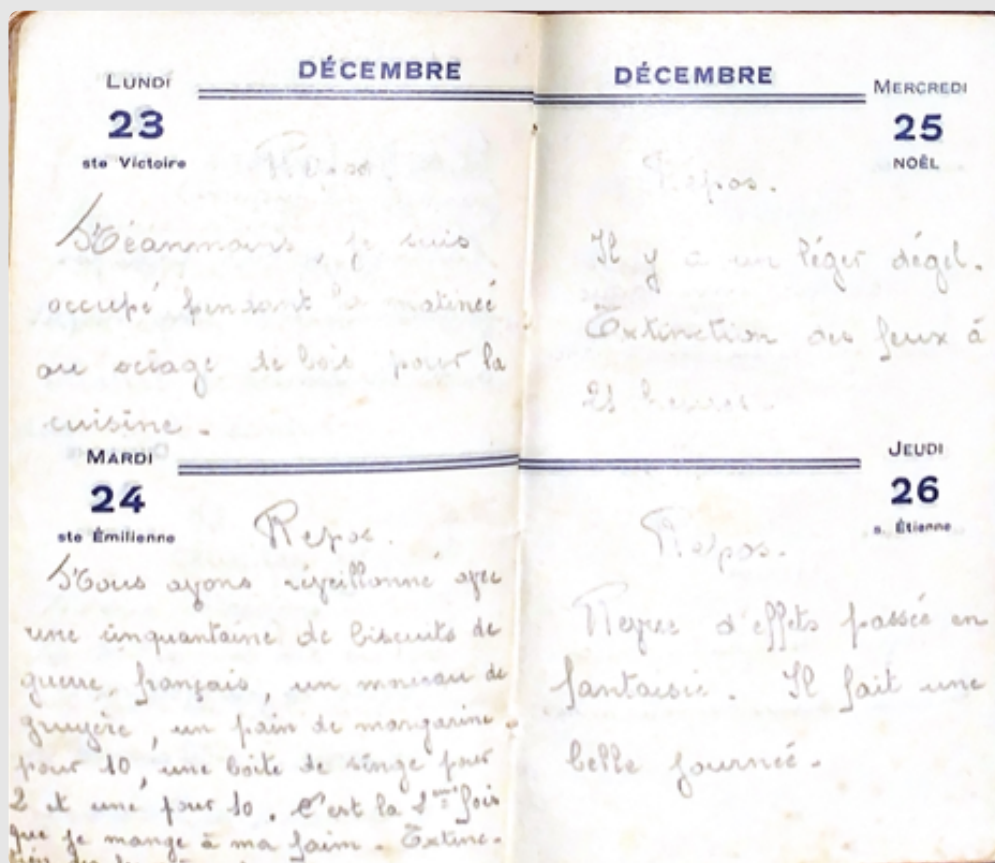 LUNDI
23
ste Victoire
DÉCEMBRE
Repos.
Néanmoins, je suis
occupé pendant la matinée
au sciage de bois pour la
cuisine.
MARDI
24
ste Émilienne
Repos.
Nous avons réveillonné avec
une cinquantaine de biscuits de
guerre, français, un morceau de
gruyère, un pain de margarine
pour 10, une boîte de singe pour
2 et une pour 10. C'est la 1ère fois
que je mange à ma faim. Extinc-
DÉCEMBRE
MERCREDI
25
NOËL
Repos.
Il y a un léger dégel.
Extinction des feux à
21 heures.
JEUDI
26
s. Étienne
Repos.
d'effets passée en
fantaisie. Il fait une
belle journée.